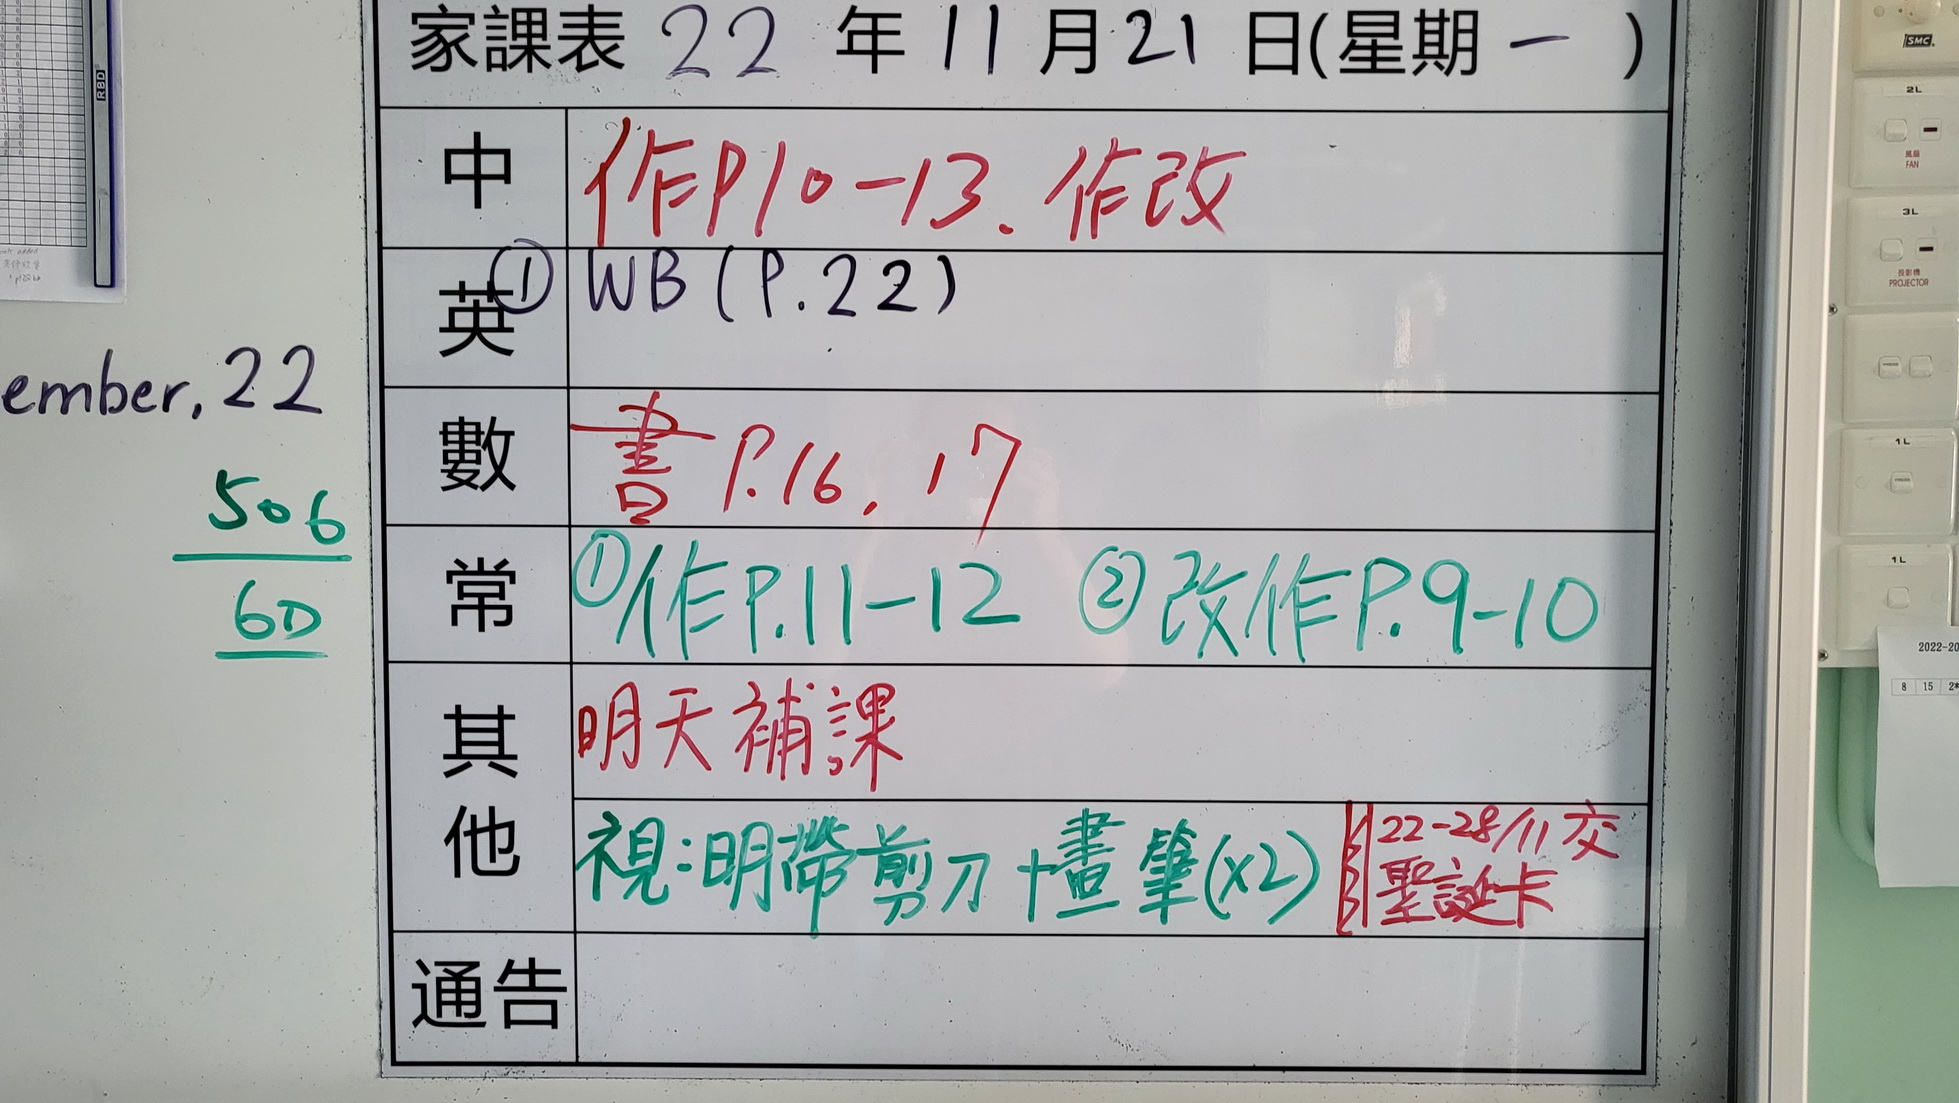 家課表 22 年 11 月 21 日(星期 一 )
中 作P10-13. 作改
英 ① WB (P.22)
數 書 P.16, 17
常 ①作P.11-12 ②改作P.9-10
其他 明天補課
視:明帶剪刀+畫筆(x2)
22-28/11 交
聖誕卡
通告
ember, 22
506
60
RBD
SMC
2L
風扇
FAN
3L
投影機
PROJECTOR
1L
1L
2022-20
8 15 2*